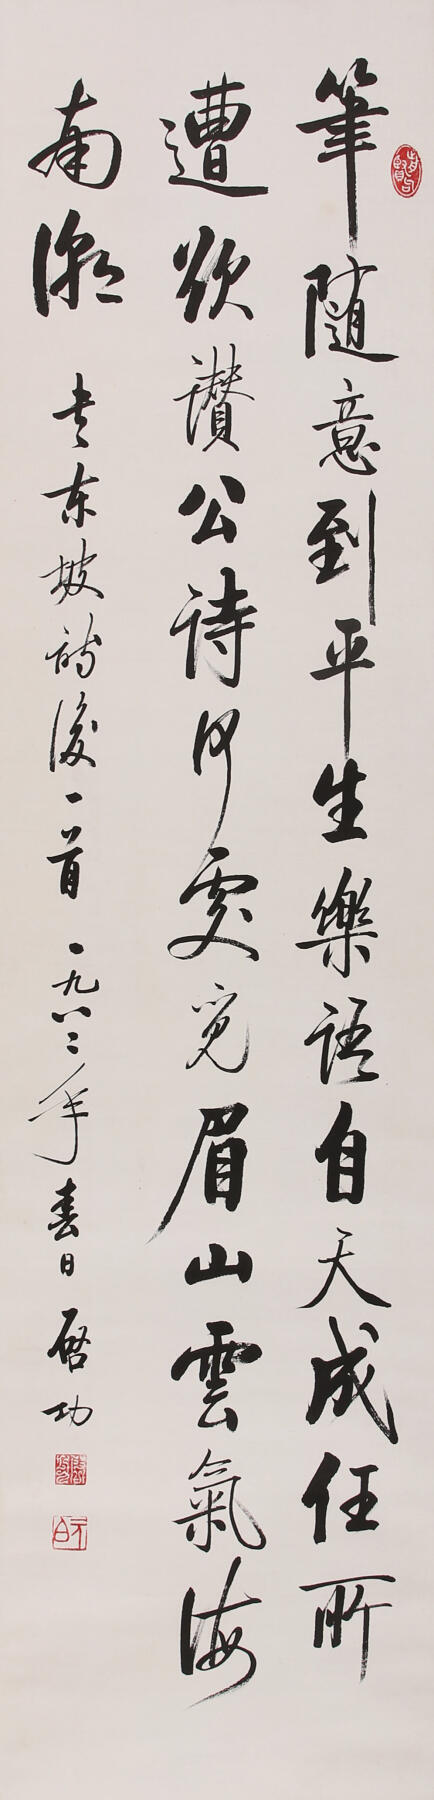 筆隨意到平生樂語自天成任所
遭欲讚公詩何處覓眉山雲氣海
南潮 书东坡詩後一首 一九八二年春日 啓功